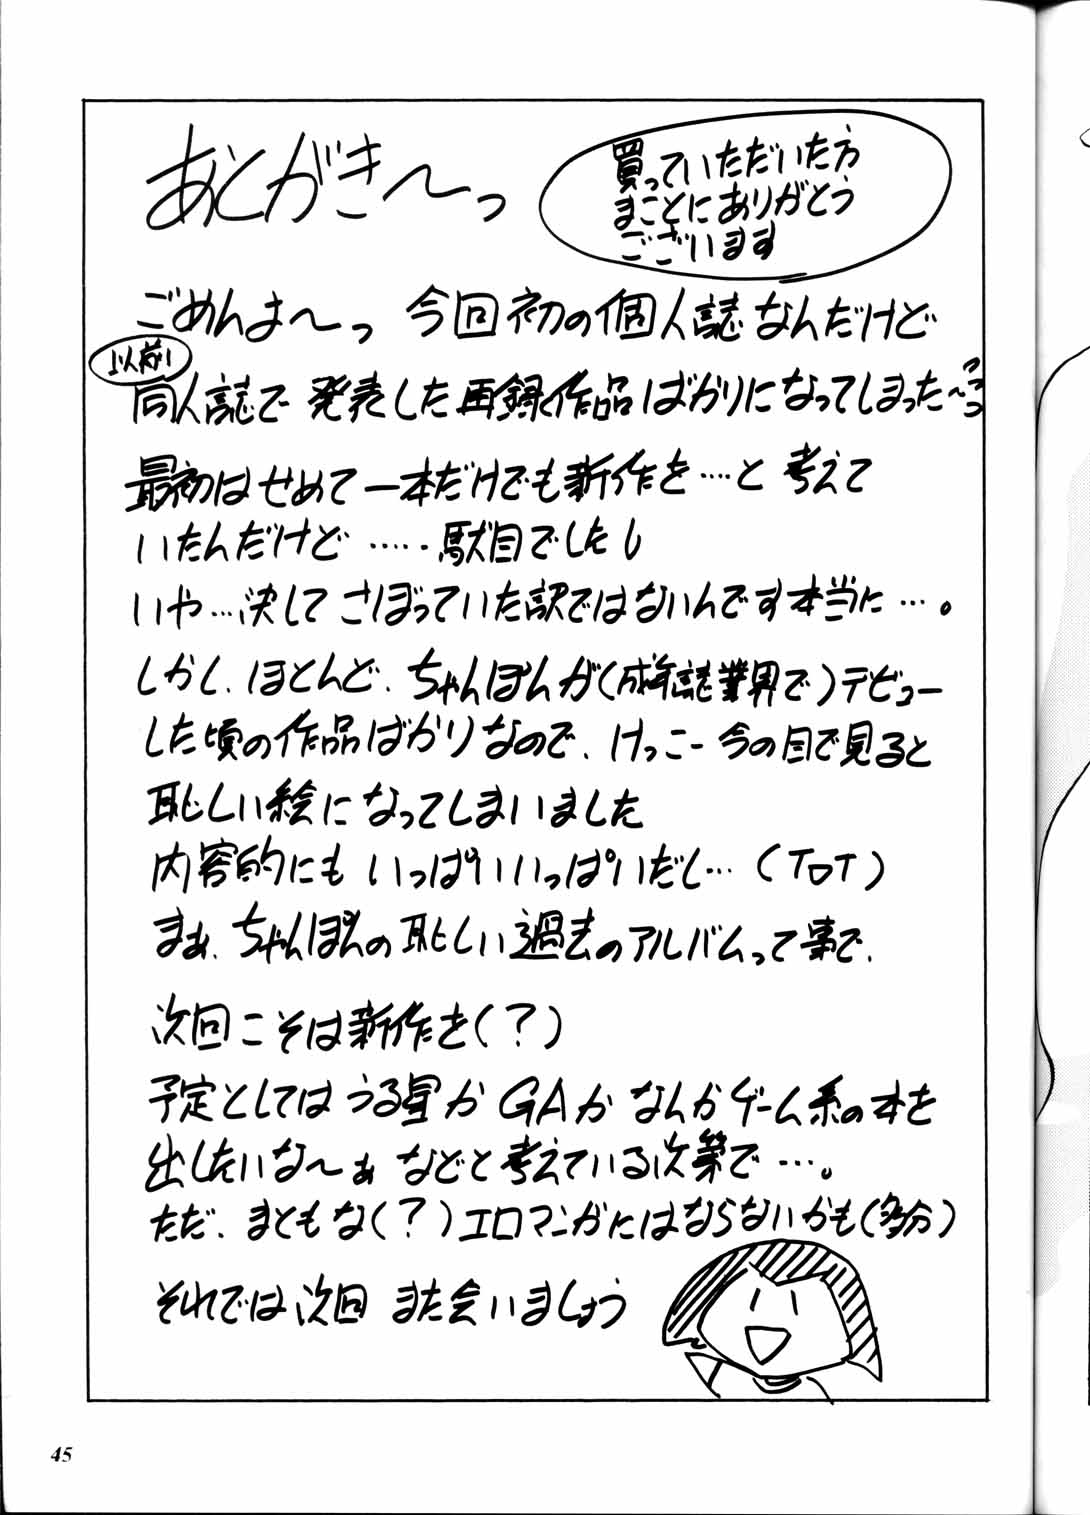 あとがき〜っ
買っていただいた方
まことにありがとう
ございます
ごめんよ〜っ 今回初の個人誌なんだけど
以前
同人誌で発表した再録作品ばかりになってしまった〜っっっ
最初はせめて一本だけでも新作を……と考えて
いたんだけど……駄目でしたし
いや…決してさぼっていた訳ではないんです本当に…。
しかし、ほとんど、ちゃんぽんが(成年誌業界で)デビュー
した頃の作品ばかりなので、けっこー今の目で見ると
恥しい絵になってしまいました
内容的にもいっぱいいっぱいだし…(TロT)
まぁ、ちゃんぽんの恥しい過去のアルバムって事で、
次回こそは新作を(?)
予定としてはうる星かGAかなんかゲーム系の本を
出したいな〜ぁなどと考えている次第で…。
ただ、まともな(?)エロマンガにはならないかも(多分)
それでは次回 また会いましょう
45